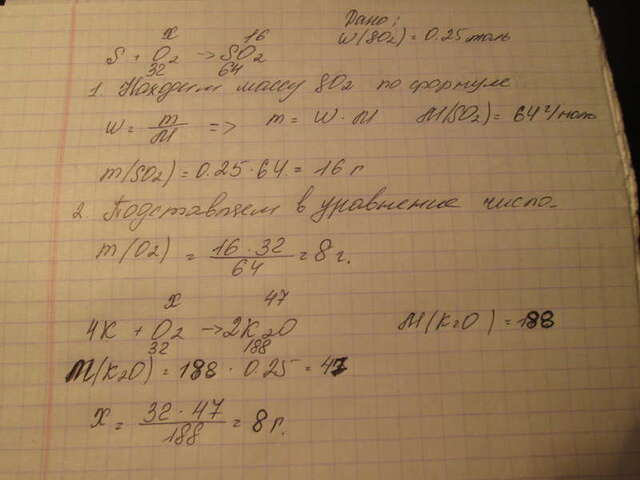 Дано:
W(SO2) = 0.25 моль
x 16
S + O2 → SO2
32 64
1. Находим массу SO2 по формуле
W = m/M => m = W · M M(SO2) = 64 г/моль
m(SO2) = 0.25 · 64 = 16 г
2. Подставляем в уравнение число.
m(O2) = 16 · 32 / 64 = 8 г.
x 47
4K + O2 → 2K2O M(K2O) = 188
32 188
M(K2O) = 188 · 0.25 = 47
x = 32 · 47 / 188 = 8 г.